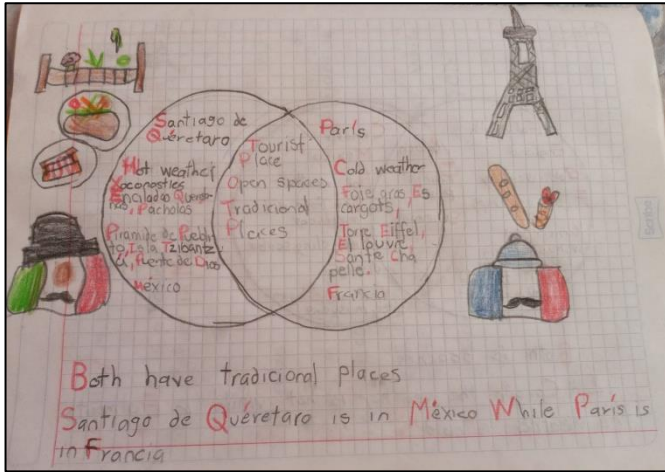 Santiago de
Quéretaro
Hot weather
Xoconostles
Enchiladas Quereta
nas, Pacholas
Piramide de Pueblo
to, Isla Tzibantz
á, Puente de Dios
México
Tourist
Place
Open spaces
Tradicional
Places
París
Cold weather
Foie gras, Es
cargots,
Torre Eiffel,
El louvre,
Sante Cha
pelle.
Francia
Both have tradicional places
Santiago de Quéretaro is in México While París is
in Francia
Scribe